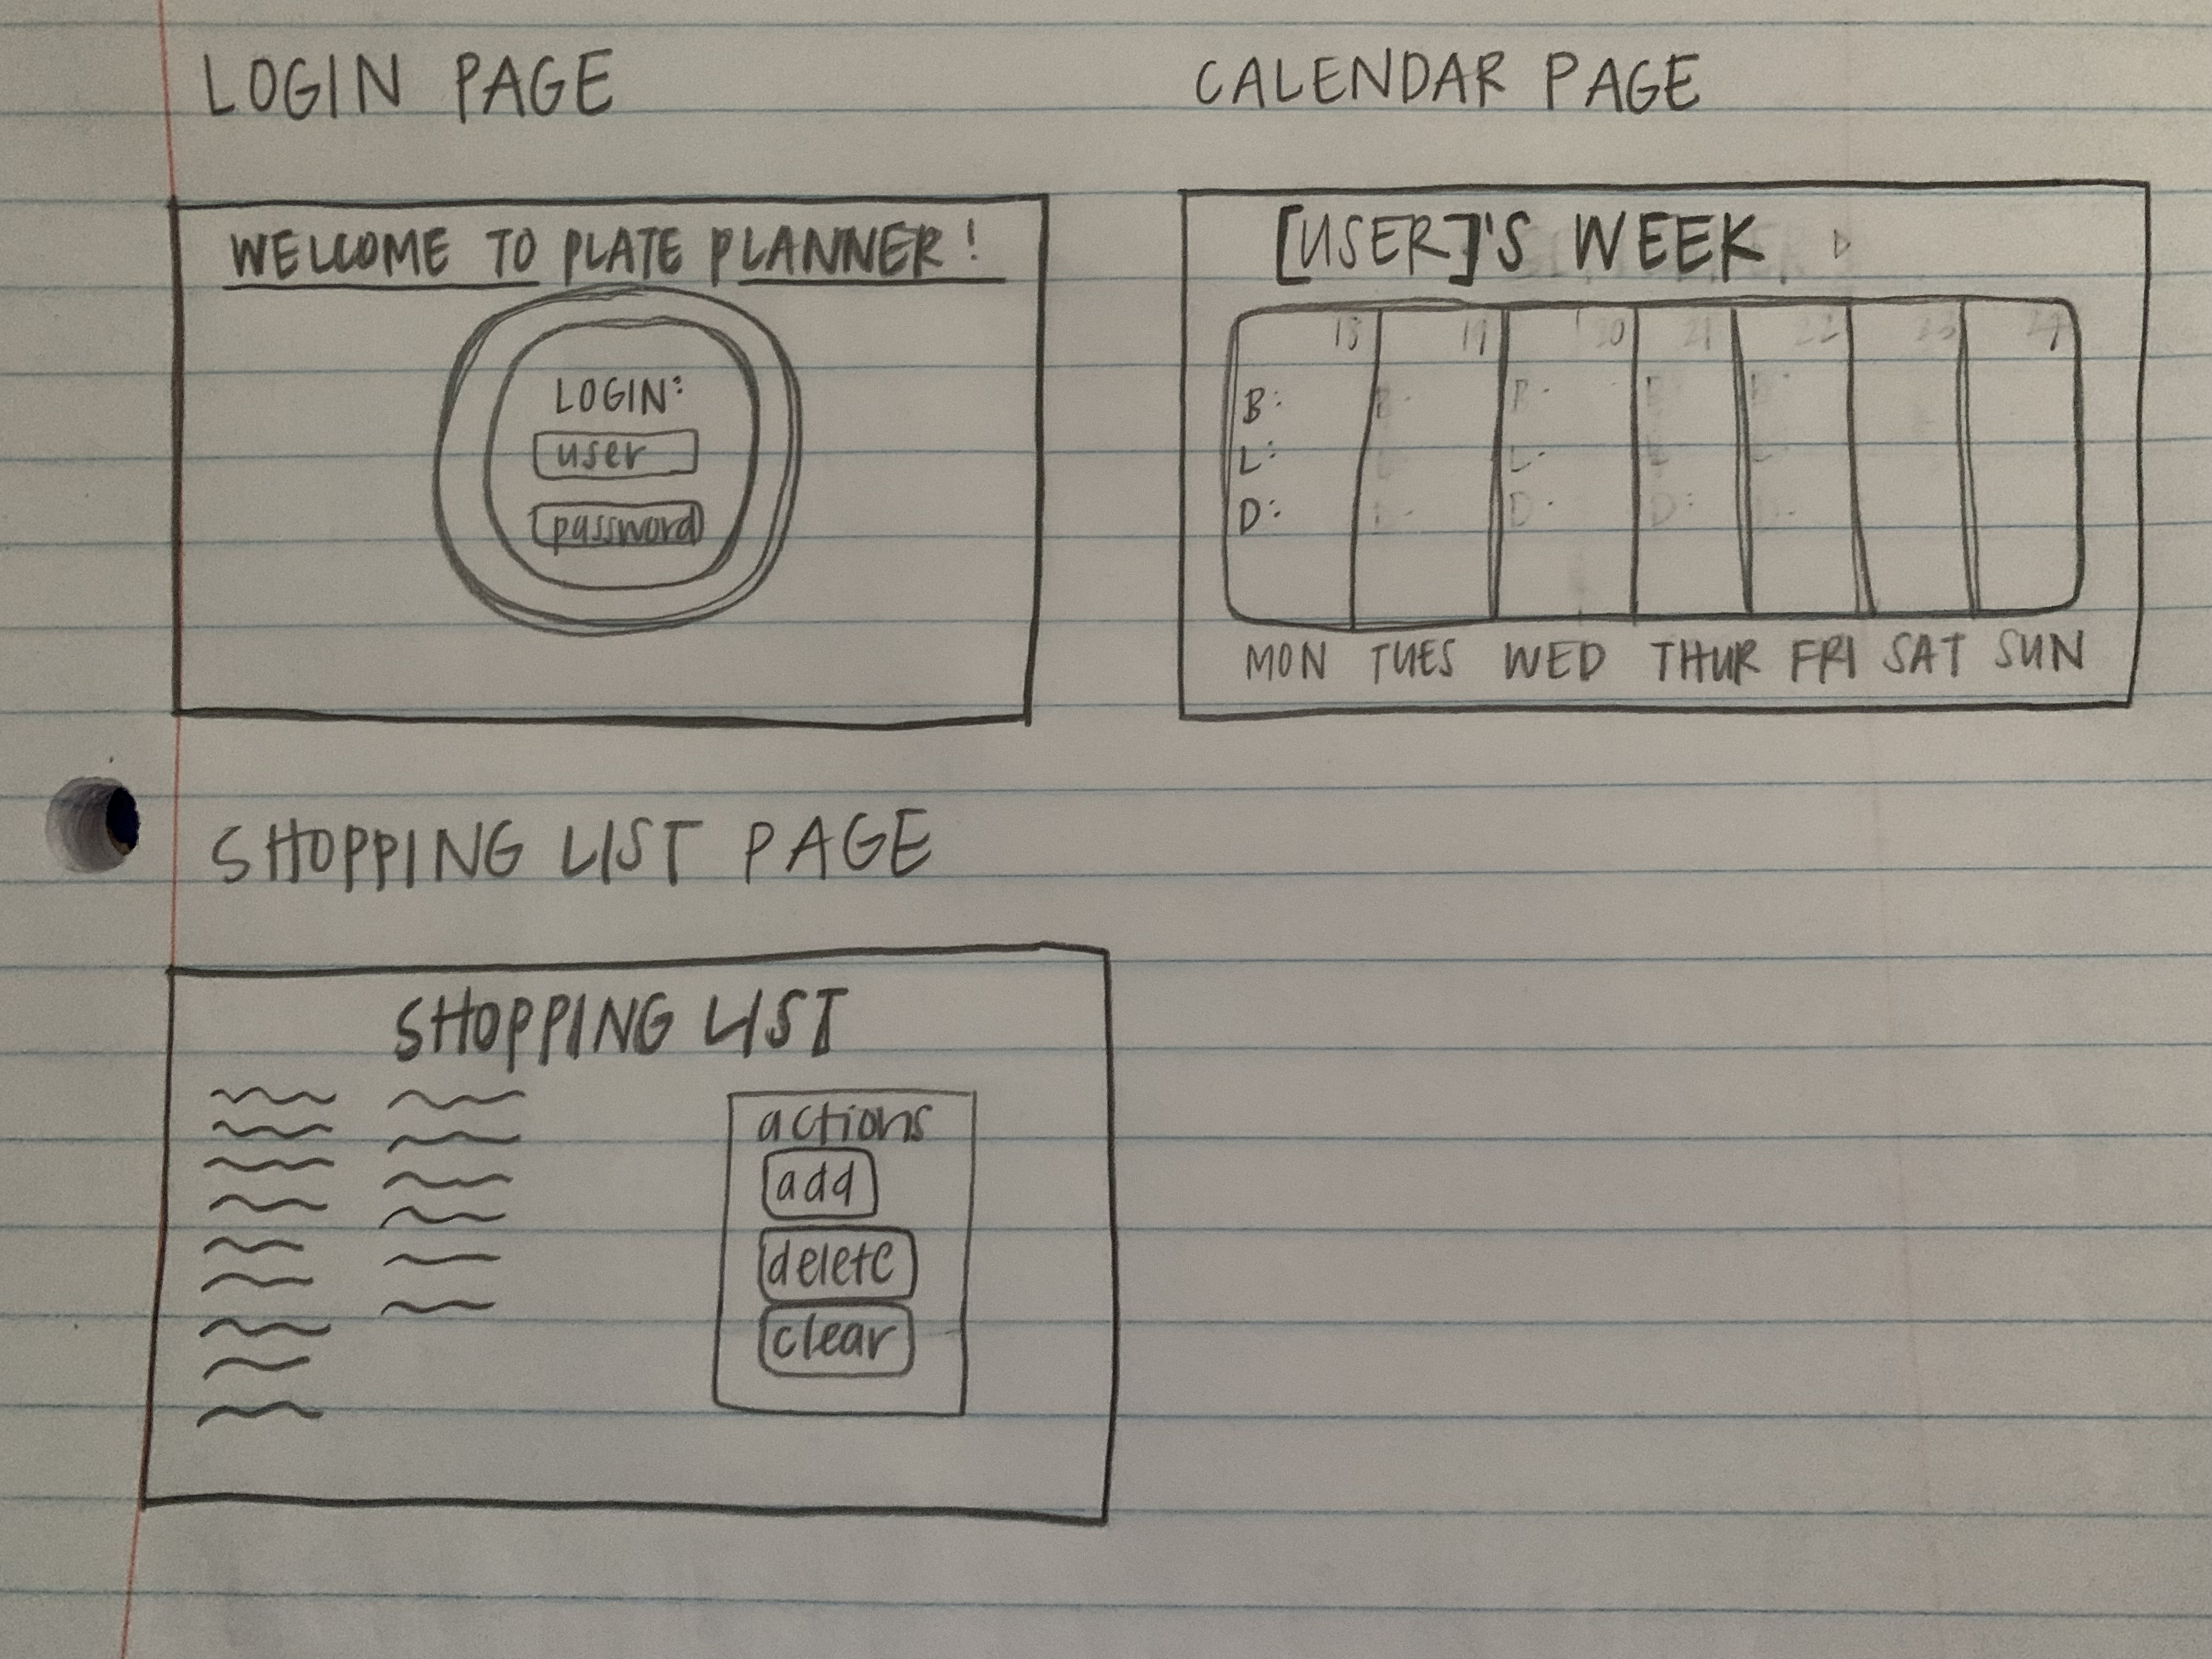 LOGIN PAGE
WELCOME TO PLATE PLANNER!
LOGIN:
user
password
CALENDAR PAGE
[USER]'S WEEK
18 19 20 21 22 23 24
B: B: B: B: B:
L: L: L: L: L:
D: D: D: D: D:
MON TUES WED THUR FRI SAT SUN
SHOPPING LIST PAGE
SHOPPING LIST
actions
add
delete
clear